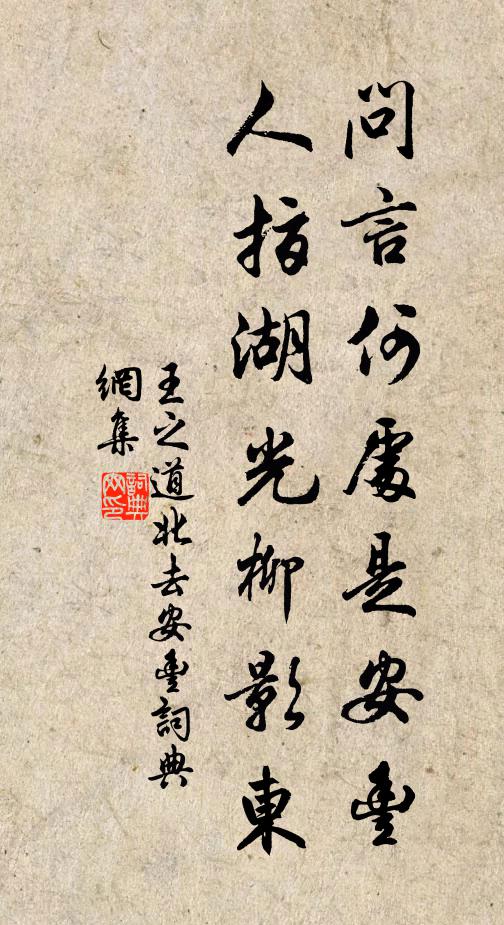 問言何處是安豐
人指湖光柳影東
王之道北去安豐詞典
網集
詞典網印